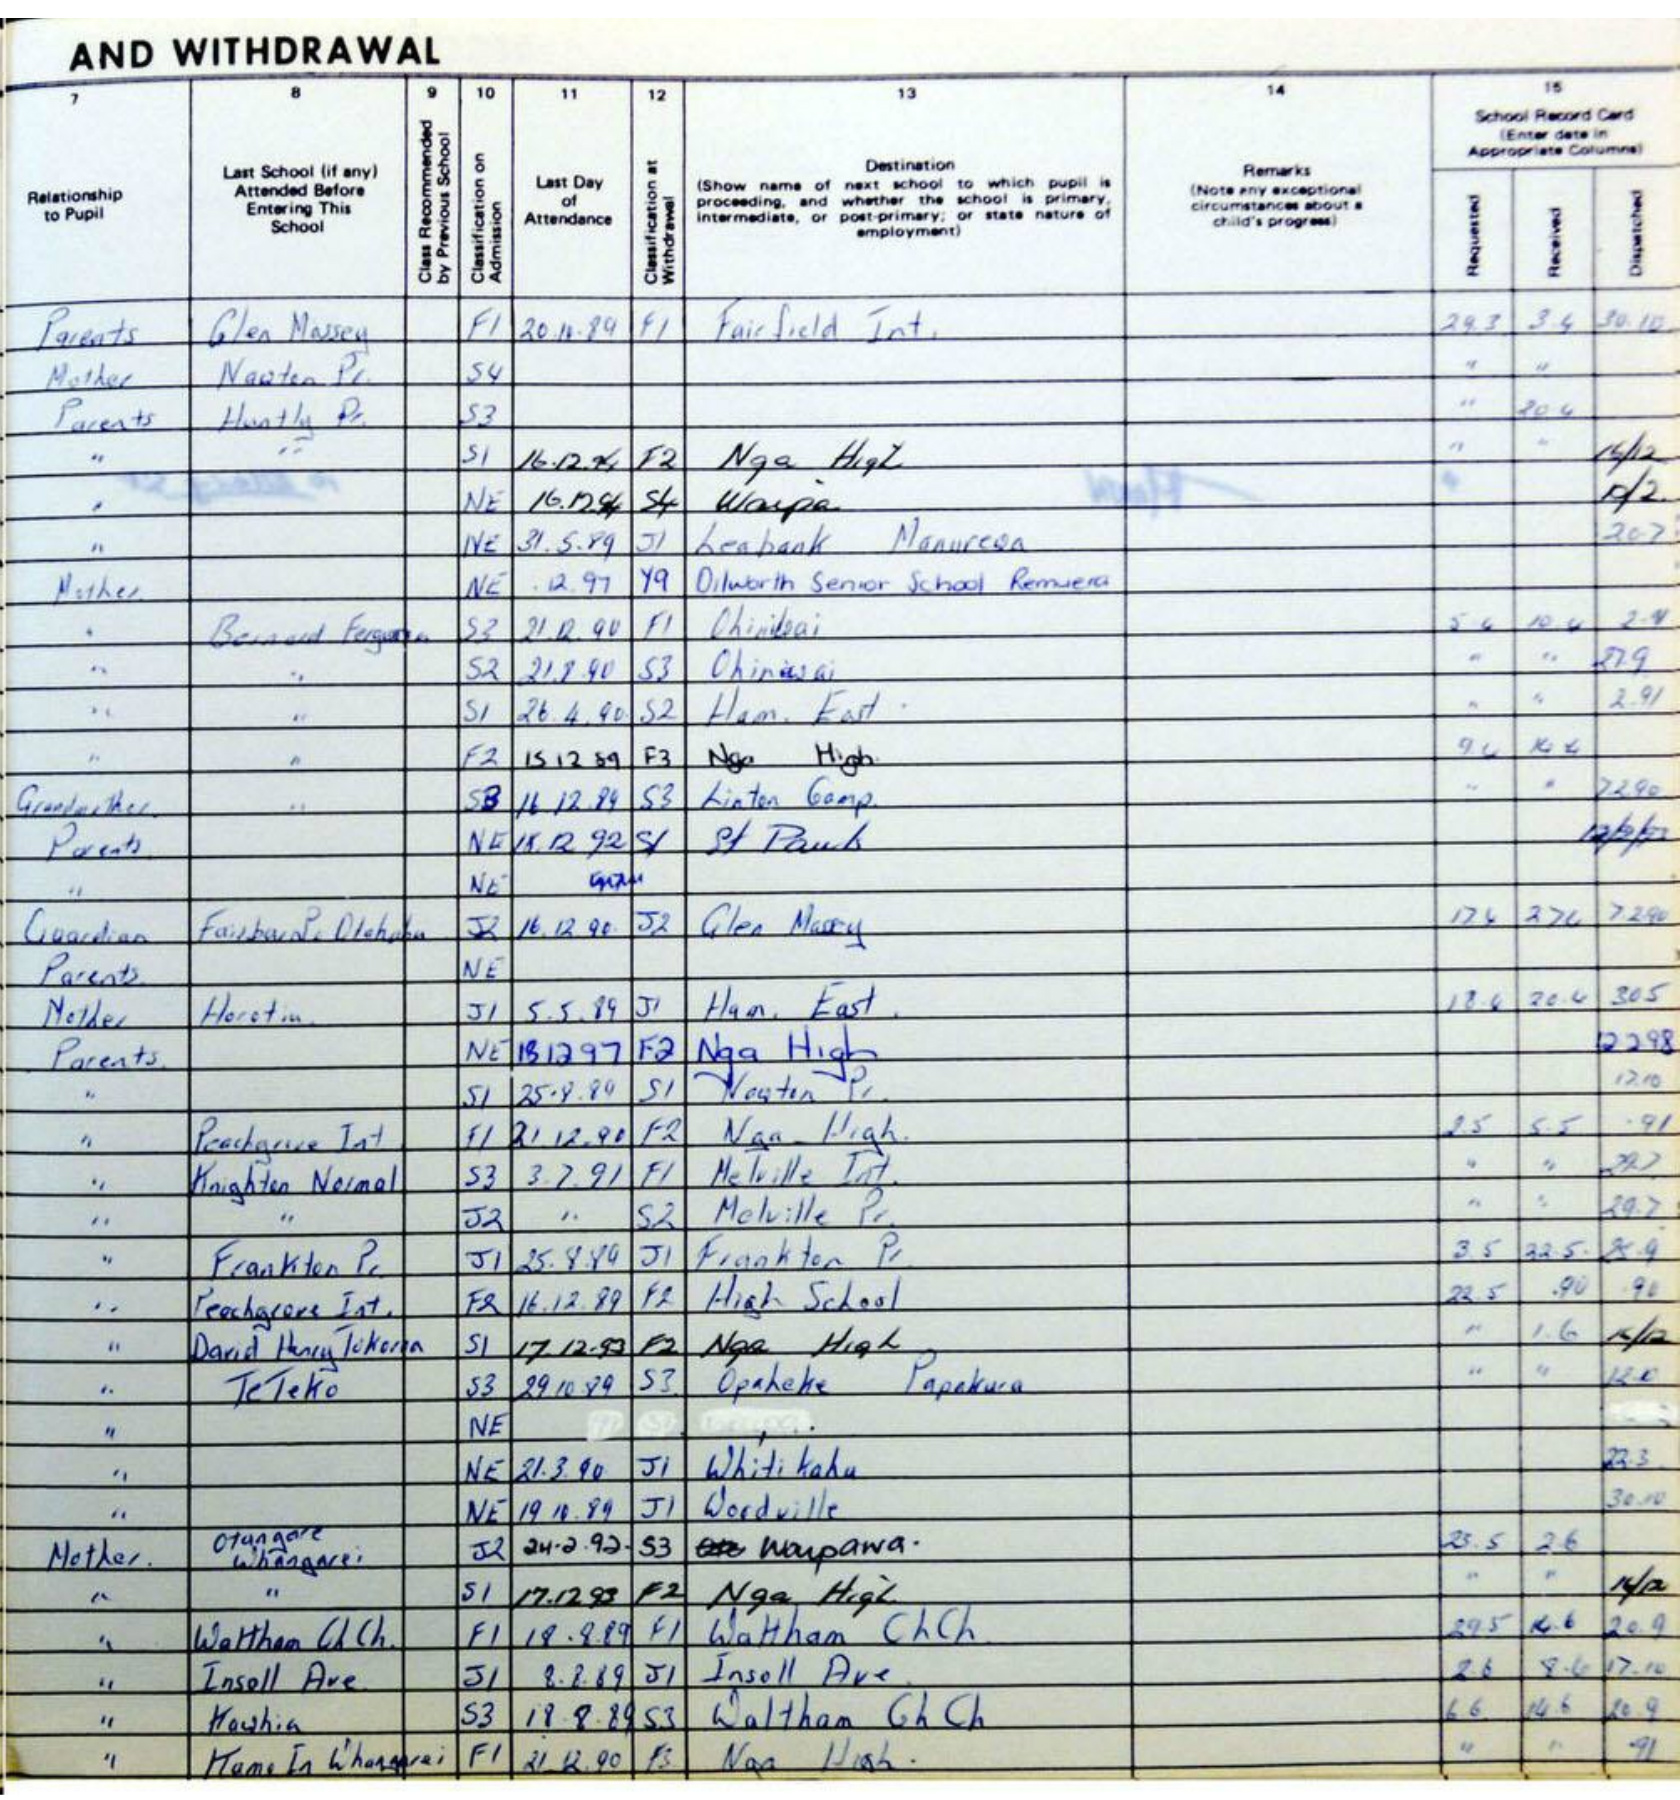 AND WITHDRAWAL
7 8 9 10 11 12 13 14 15
Relationship to Pupil
Last School (if any) Attended Before Entering This School
Class Recommended by Previous School
Classification on Admission
Last Day of Attendance
Classification at Withdrawal
Destination (Show name of next school to which pupil is proceeding, and whether the school is primary, intermediate, or post-primary; or state nature of employment)
Remarks (Note any exceptional circumstances about a child's progress)
School Record Card (Enter date in Appropriate Columns)
Requested Received Dispatched
Parents Glen Massey F1 F1 Fairfield Int. 29.3 3.4 30.10
Mother Nawton Pr. S4 " "
Parents Huntly Pr. S3 " 20 4
" " S1 16.12.94 F2 Nga High " " 16/12
" NE 16.12.94 S4 Waipa
" NE 31.5.89 J1 Leabank Manurewa 20.7
Mother NE .12.97 Y9 Dilworth Senior School Remuera
" Bernard Ferguson S3 21.12.90 F1 5 4 10.4
" " S2 S3 " " 27.9
" " S1 26.4.90 S2 Ham. East " " 2.91
" " F2 15 12 89 F3 Nga High 9 4 14 4
Grandmother " S3 16.12.89 S3 Linton Camp. " " 7290
Parents NE 18.12 92 S1 St Pauls
" NE
Guardian J2 16.12.90 J2 Glen Massey 17 4 27 4 7.2.90
Parents NE
Mother Horotiu J1 5.5.89 J1 Ham. East 18.4 20.4 30.5
Parents. NE 18 12 97 F2 Nga High 12 2 98
" S1 25.8.89 S1 Nawton Pr. 12.10
" Peachgrove Int F1 21.12.90 F2 Nga High. 2.5 5.5 .91
" Knighton Normal S3 3.7.91 F1 Melville Int. " " 29.7
" " J2 " S2 Melville Pr. " " 29.7
" Frankton Pr. J1 25.8.89 J1 Frankton Pr 3.5 22.5.
" Peachgrove Int. F2 16.12.89 F2 High School 22.5 .90 .90
" David Henry Tokoroa S1 17.12.93 F2 Nga High " 1.6 16/12
" Te Teko S3 29 10 89 S3 Opaheke Papakura " "
" NE
" NE 21.3.90 J1 Whitikahu 22.3
" NE 19 10.89 J1 Woodville 30.10
Mother. Otangare Whangarei J2 24.2.92. S3 Waipawa. 23.5 2.6
" " S1 17.12 93 F2 Nga High " " 16/12
" Waltham ChCh. F1 18.8.89 F1 Waltham ChCh 29.5 14.6 20.9
" Insoll Ave J1 8.8.89 J1 Insoll Ave 2.6 8.6 17.10
" Kawhia S3 18.8.89 S3 Waltham ChCh 6 6 14.6 20.9
" Kamo In Whangarei F1 21.12.90 F3 Nga High. " " 91